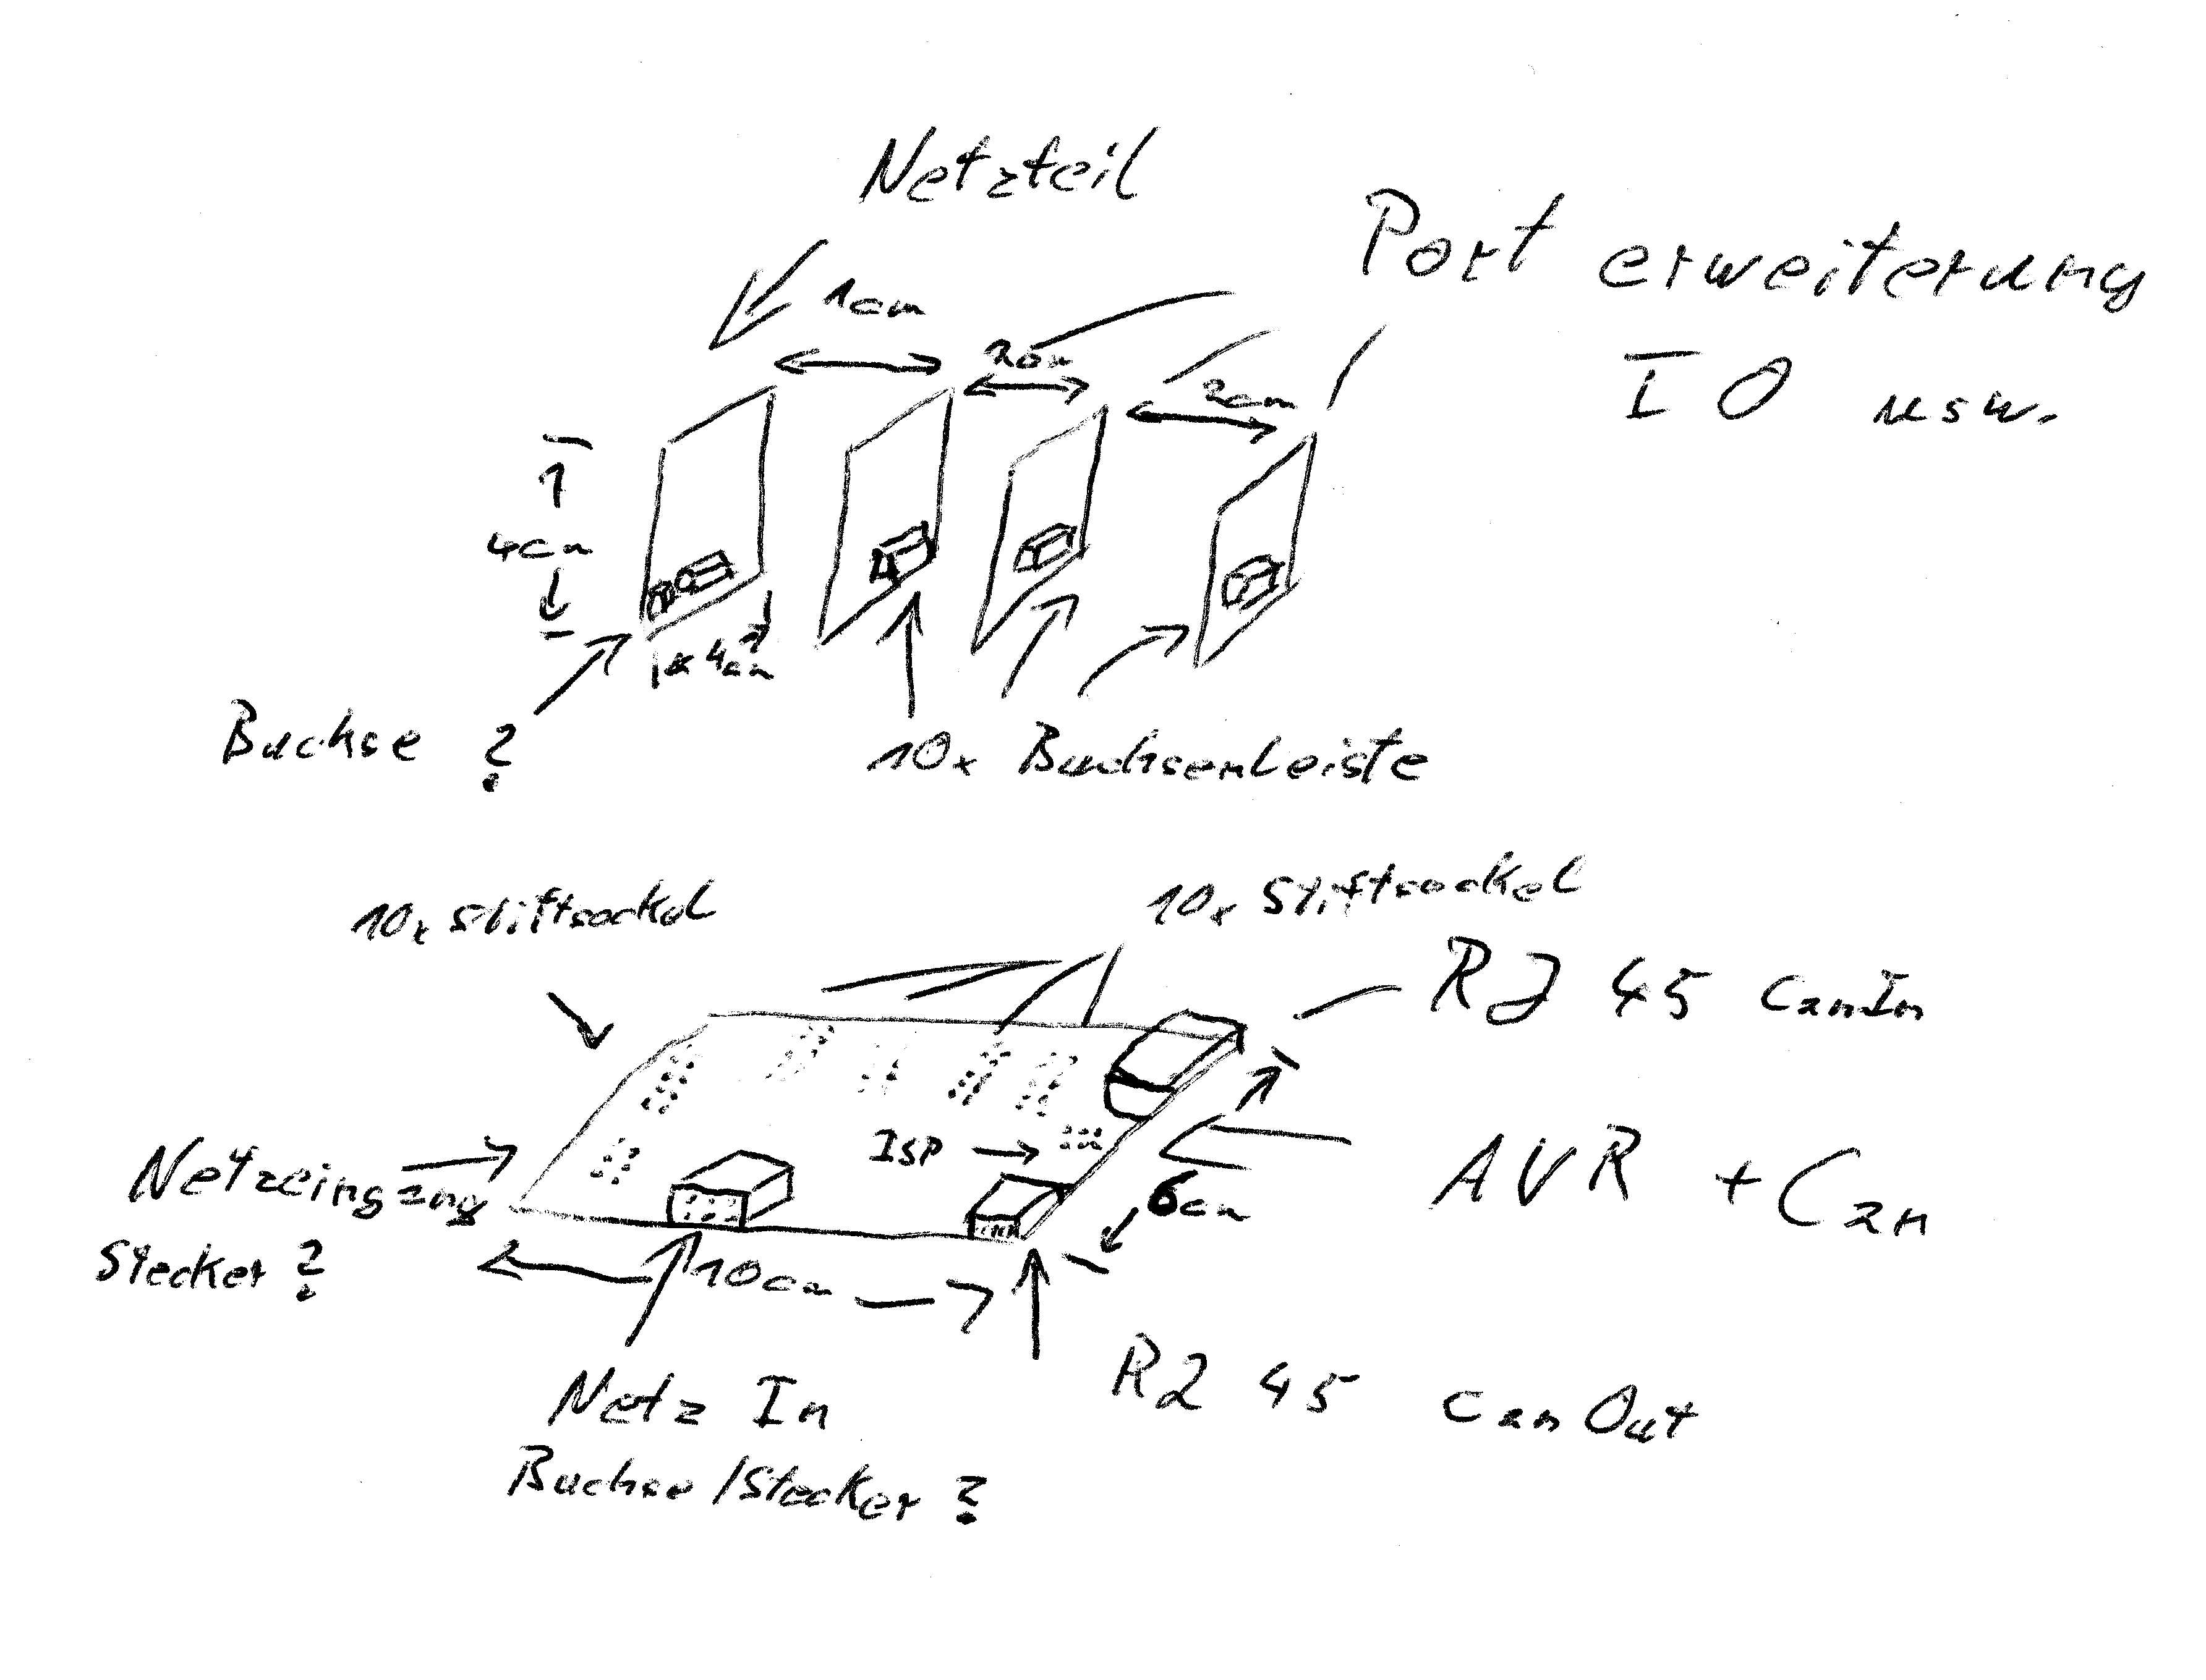 Netzteil
Port erweiterung
IO usw.
1cm
2cm
2cm
4cm
4cm
Buchse ?
10x Buchsenleiste
10x Stiftsockel
10x Stiftsockel
RJ 45 CanIn
ISP
AVR + Can
Netzeingang
Stecker ?
6cm
10cm
RJ 45 Can Out
Netz In
Buchse/Stecker ?